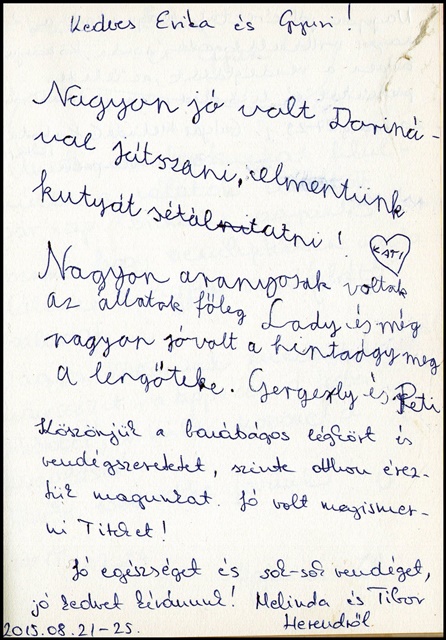 Kedves Erika és Gyuri!
Nagyon jó volt Doriná-
val játszani, elmentünk
kutyát sétáltatni!
KATI
Nagyon aranyosak voltak
az állatok főleg Lady és még
nagyon jó volt a hintaágy meg
a lengőteke. Gergely és Peti
Köszönjük a barátságos légkört és
vendégszeretetet, szinte otthon érez-
tük magunkat. Jó volt megismer-
ni Titeket!
Jó egészséget és sok-sok vendéget,
jó kedvet kívánunk! Melinda és Tibor
2015.08.21-25. Herendről